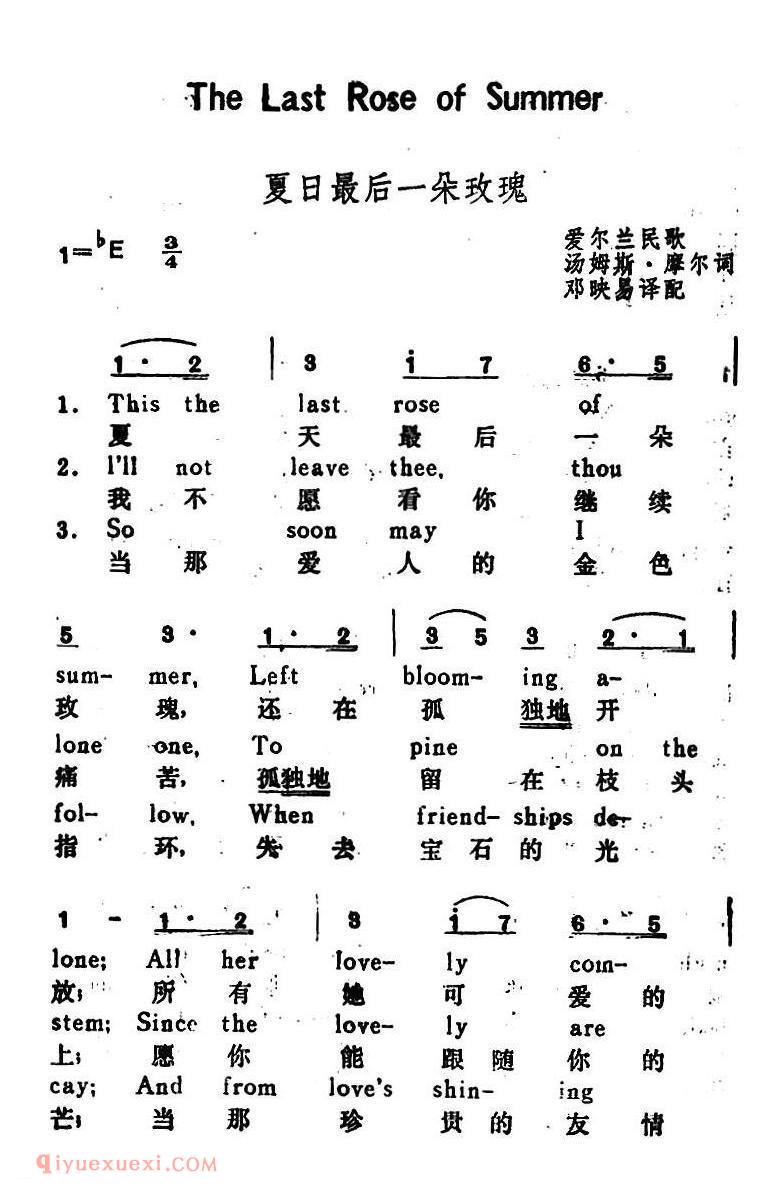 The Last Rose of Summer
夏日最后一朵玫瑰
1=♭E 3/4
爱尔兰民歌
汤姆斯·摩尔词
邓映易译配
1· 2 | 3 i 7 6· 5 |
1. This the last rose of
夏 天 最 后 一 朵
2. I'll not leave thee, thou
我 不 愿 看 你 继 续
3. So soon may I
当 那 爱 人 的 金 色
5 3· 1· 2 | 3 5 3 2· 1
sum- mer, Left bloom- ing a-
玫 瑰, 还 在 孤 独地 开
lone one, To pine on the
痛 苦, 孤独地 留 在 枝 头
fol- low, When friend- ships de-
指 环, 失 去 宝 石 的 光
1 - 1· 2 | 3 i 7 6· 5 |
lone; All her love- ly com-
放; 所 有 她 可 爱 的
stem; Since the love- ly are
上; 愿 你 能 跟 随 你 的
cay; And from love's shin- ing
芒; 当 那 珍 贵 的 友 情
qiyuexuexi.COM